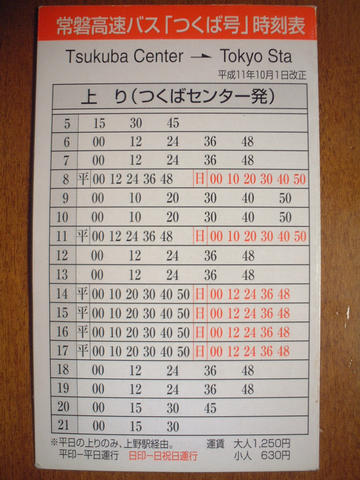 常磐高速バス「つくば号」時刻表
Tsukuba Center → Tokyo Sta
平成11年10月1日改正
上り(つくばセンター発)
5 15 30 45
6 00 12 24 36 48
7 00 12 24 36 48
8 平 00 12 24 36 48 日 00 10 20 30 40 50
9 00 10 20 30 40 50
10 00 10 20 30 40 50
11 平 00 12 24 36 48 日 00 10 20 30 40 50
12 00 12 24 36 48
13 00 12 24 36 48
14 平 00 10 20 30 40 50 日 00 12 24 36 48
15 平 00 10 20 30 40 50 日 00 12 24 36 48
16 平 00 10 20 30 40 50 日 00 12 24 36 48
17 平 00 10 20 30 40 50 日 00 12 24 36 48
18 00 12 24 36 48
19 00 12 24 36 48
20 00 15 30 45
21 00 15 30
※平日の上りのみ、上野駅経由。 運賃 大人1,250円
平印―平日運行 日印―日祝日運行 小人 630円